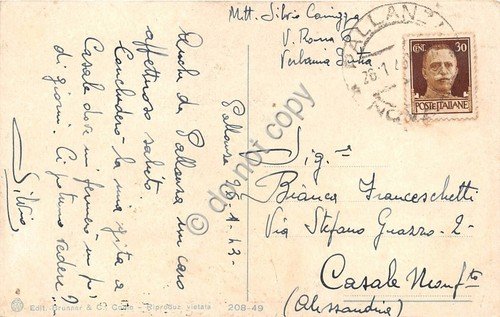 Mitt. Silvio
V. Roma
Verbania
PALLANZA
CENT. 30
POSTE ITALIANE
Pallanza 26-1-43-
Anche da Pallanza un caro
affettuoso saluto.
Concluderò la mia gita a
Casale dove mi fermerò un po'
di giorni. Ci potremo vedere?
Silvio
Sig.na
Bianca Franceschetti
Via Stefano Guazzo - 2 -
Casale Monf.to
(Alessandria)
Edit. Brunner & C., Como - Riproduz. vietata
208-49
do not copy